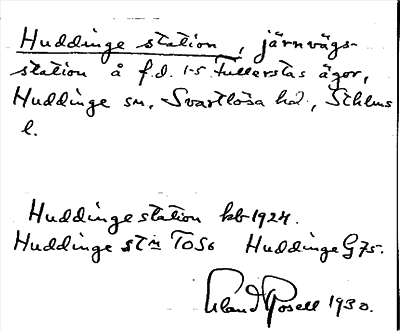 Huddinge station, järnvägs-
station å f.d. 1-5 Fullerstas ägor,
Huddinge sn, Svartlösa hd, Sthlms
l.
Huddinge station kb 1924.
Huddinge stn TOS6 Huddinge G75.
Erland Rosell 1930.